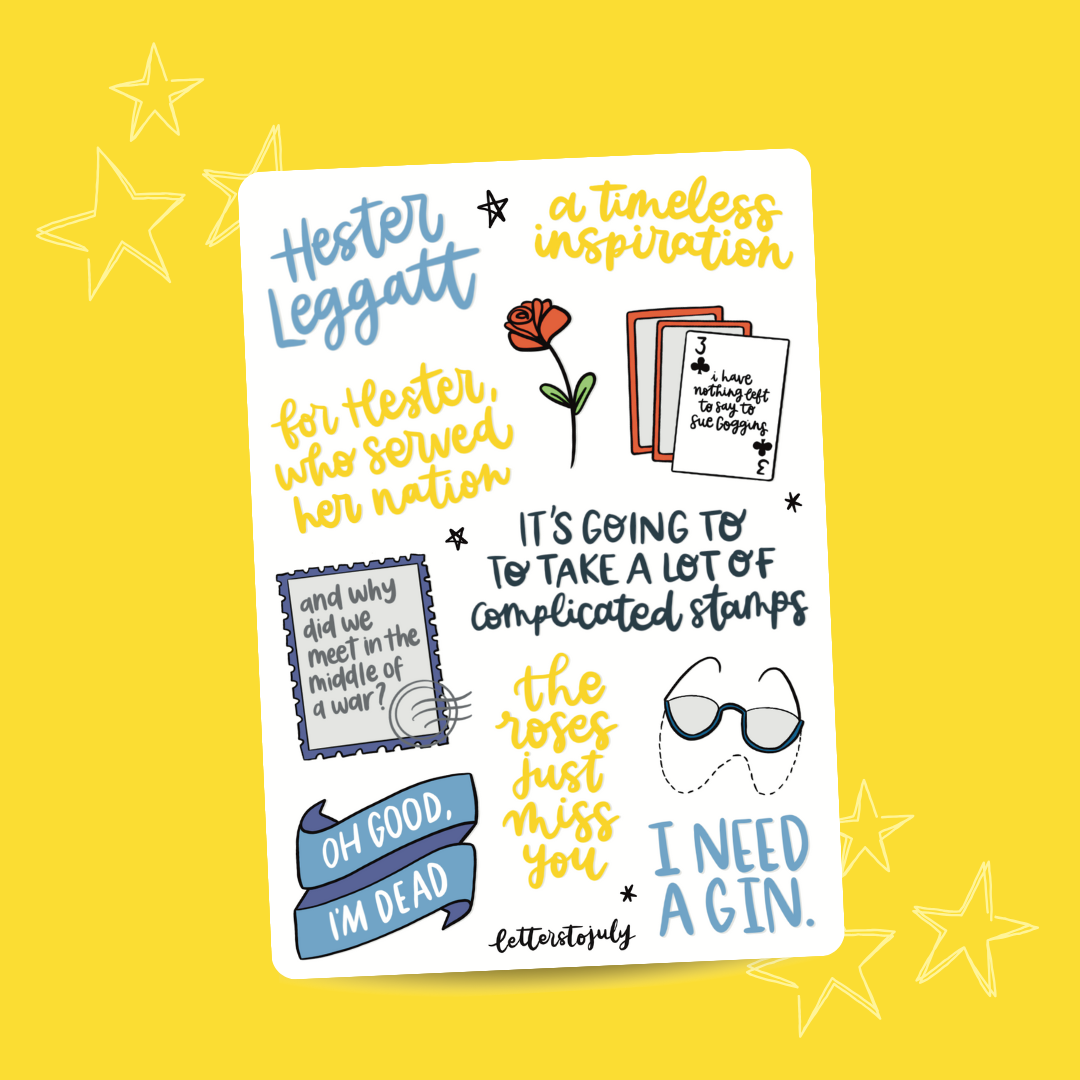 Hester
Leggatt
a timeless
inspiration
for Hester,
who served
her nation
3
i have
nothing left
to say to
Sue Goggins
3
IT'S GOING TO
TO TAKE A LOT OF
complicated stamps
and why
did we
meet in the
middle of
a war?
the
roses
just
miss
you
OH GOOD,
I'M DEAD
I NEED
A GIN.
letterstojuly